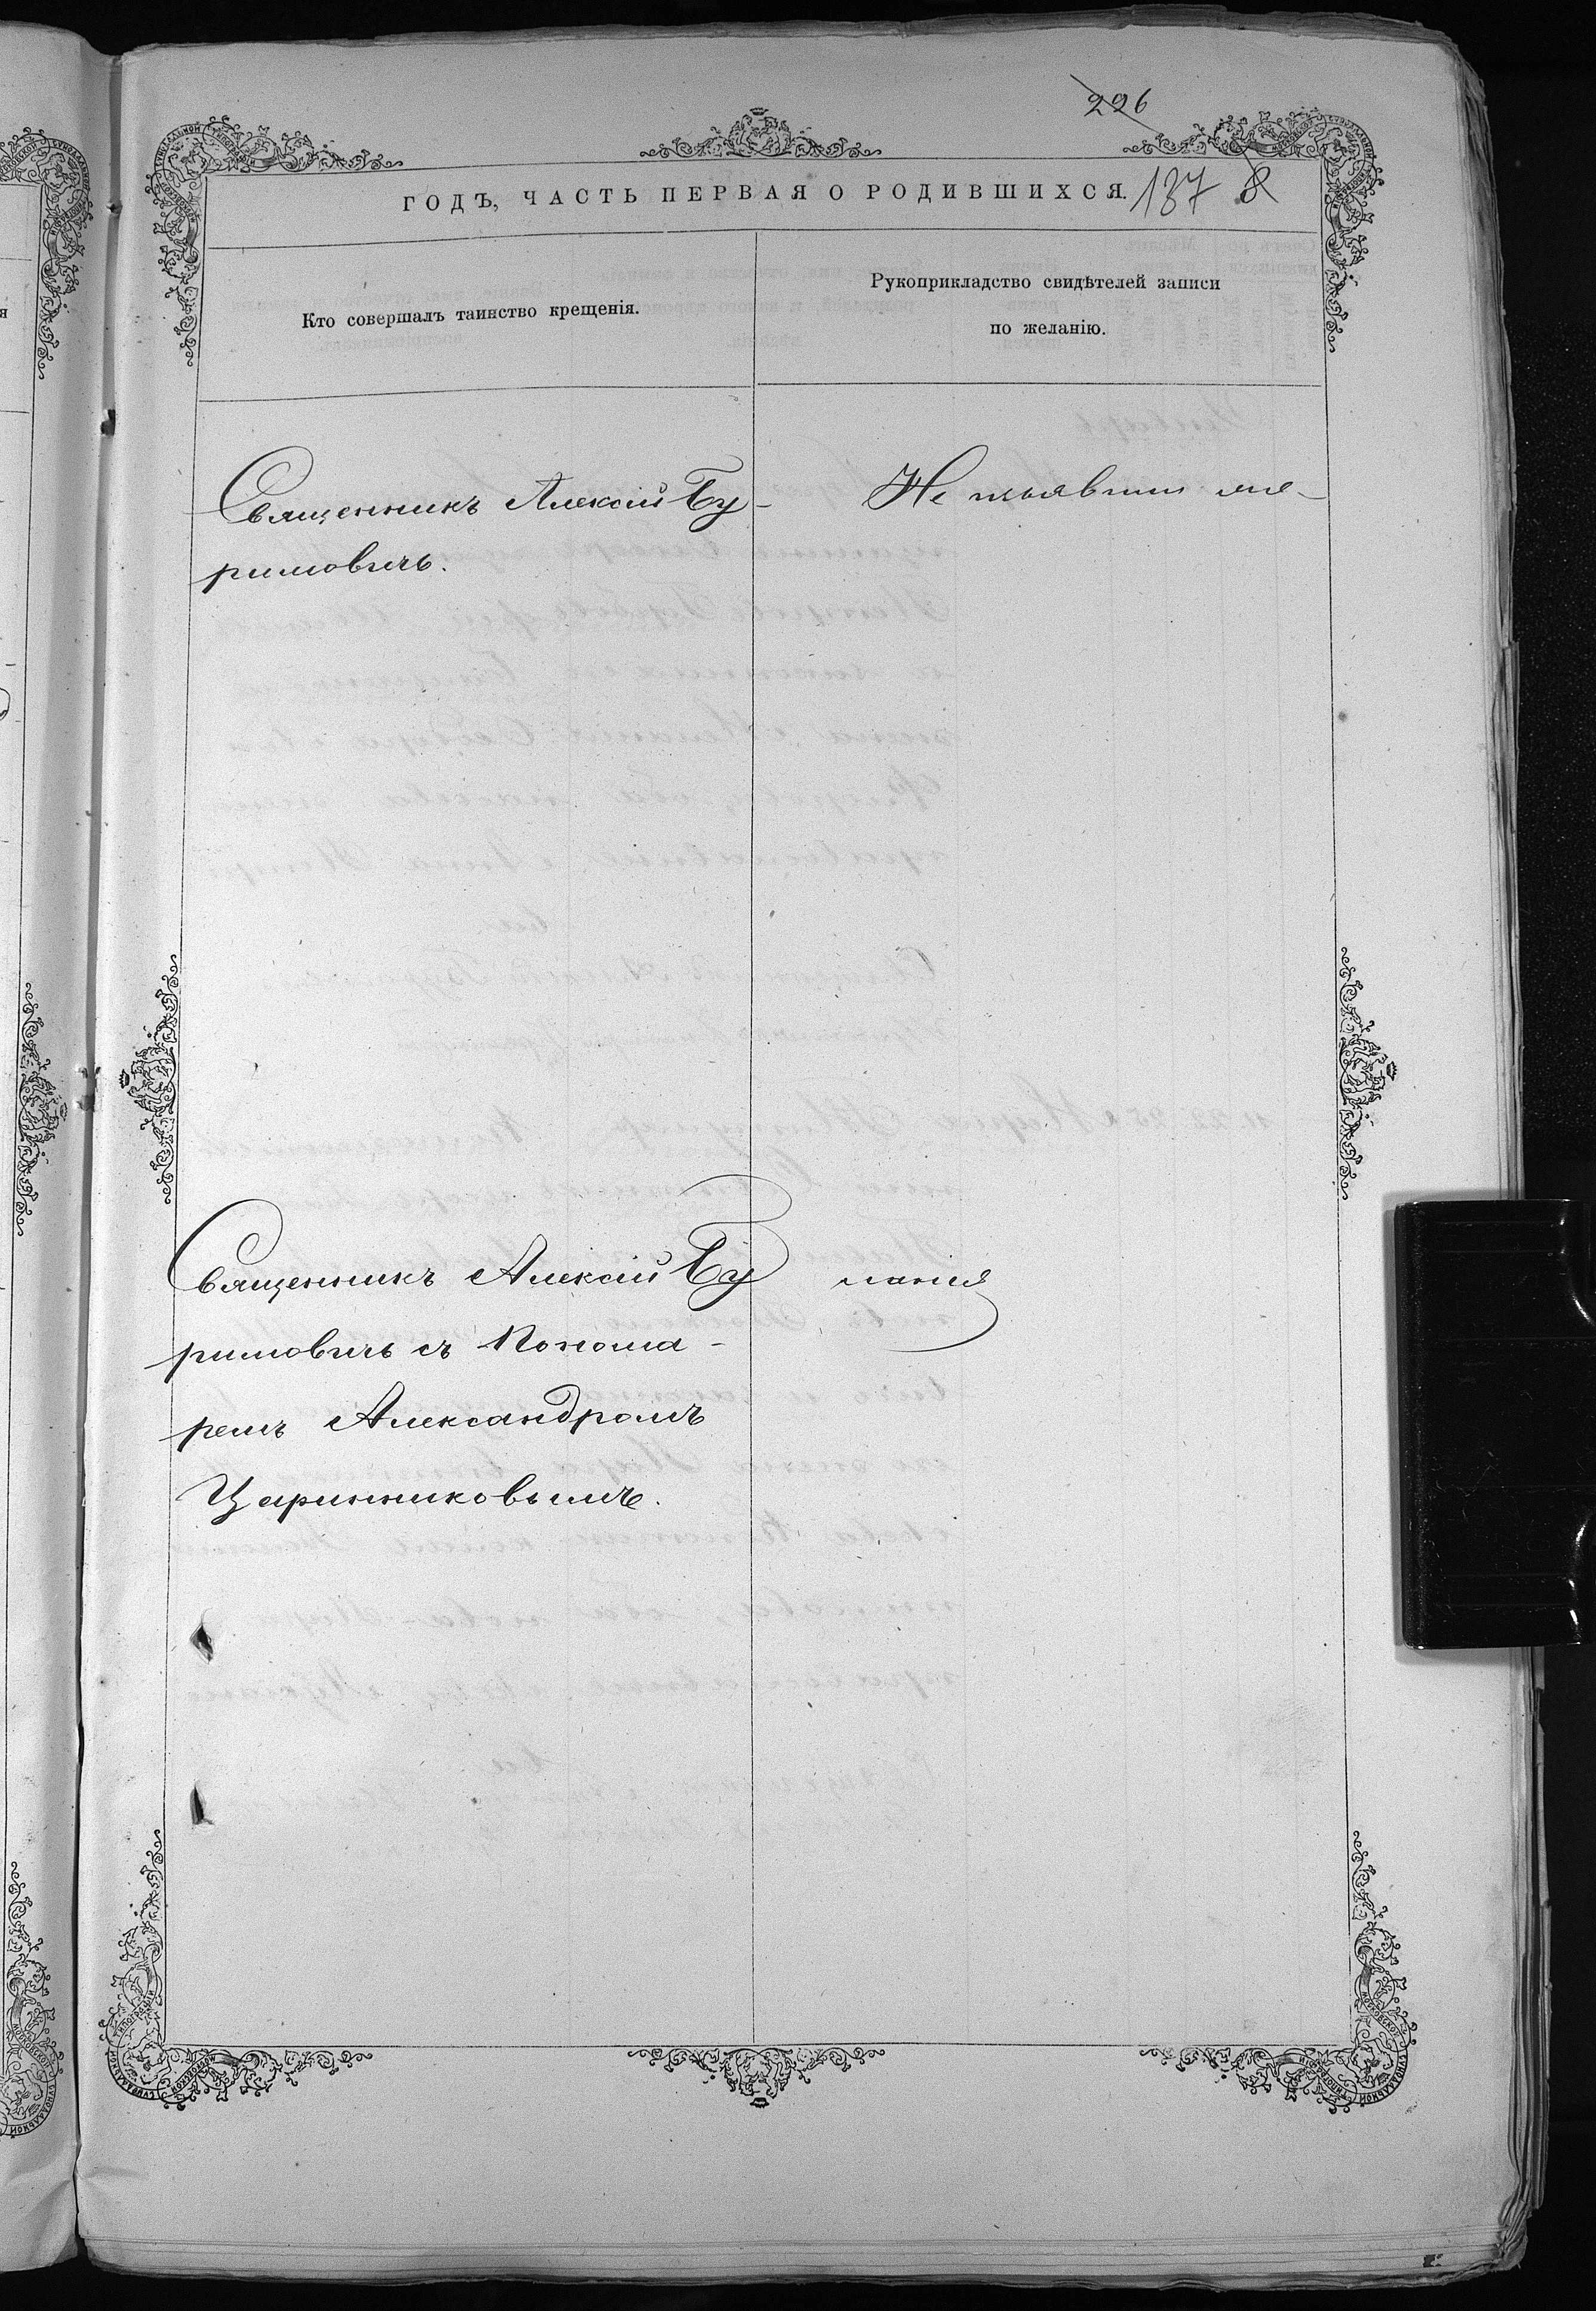 226
ГОДЪ, ЧАСТЬ ПЕРВАЯ О РОДИВШИХСЯ. 137 8
Кто совершалъ таинство крещенія.
Рукоприкладство свидѣтелей записи
по желанію.
Священникъ Алексій Бу-
римовичъ.
Не изъявили же-
Священникъ Алексій Бу
римовичъ съ Понома-
ремъ Александромъ
Царинниковымъ.
ланія